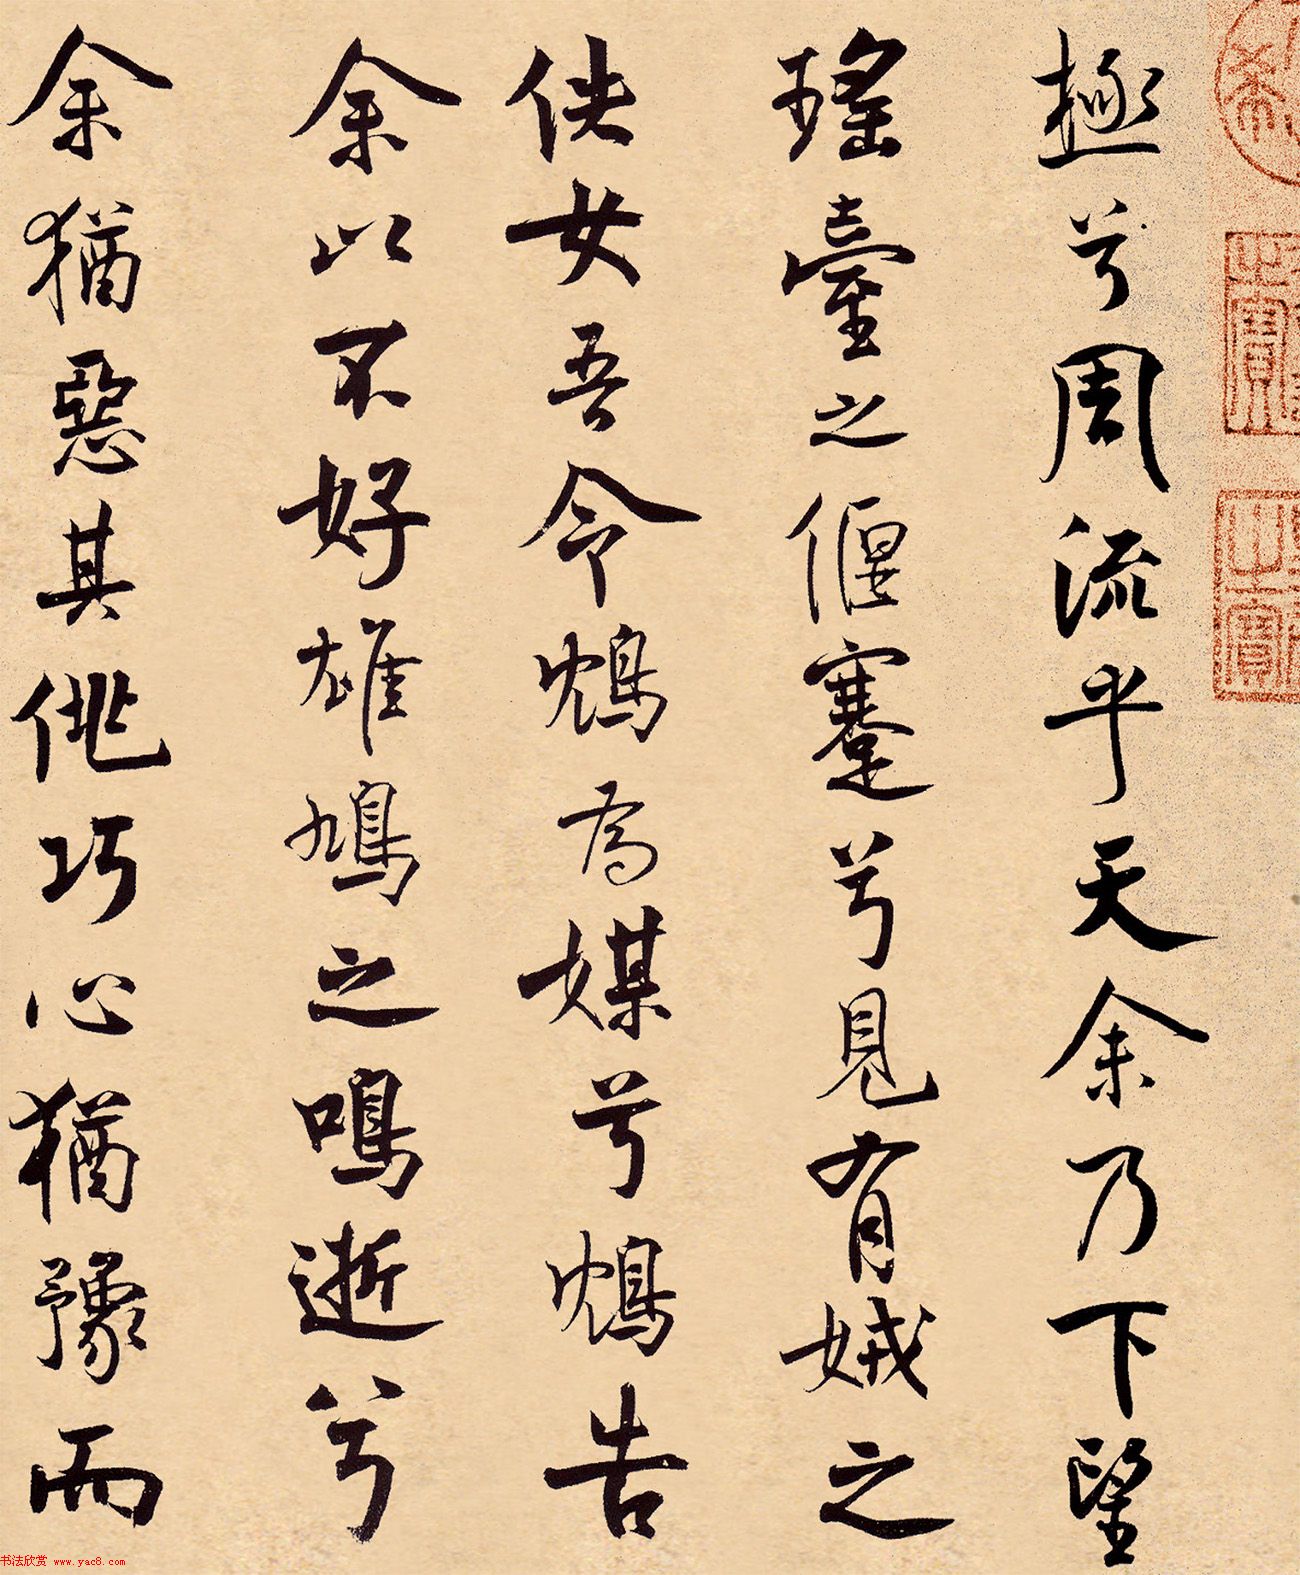 希
之寶
之寶
極兮周流乎天余乃下望
瑤臺之偃蹇兮見有娀之
佚女吾令鴆為媒兮鴆告
余以不好雄鳩之鳴逝兮
余猶惡其佻巧心猶豫而
书法欣赏 www.yac8.com